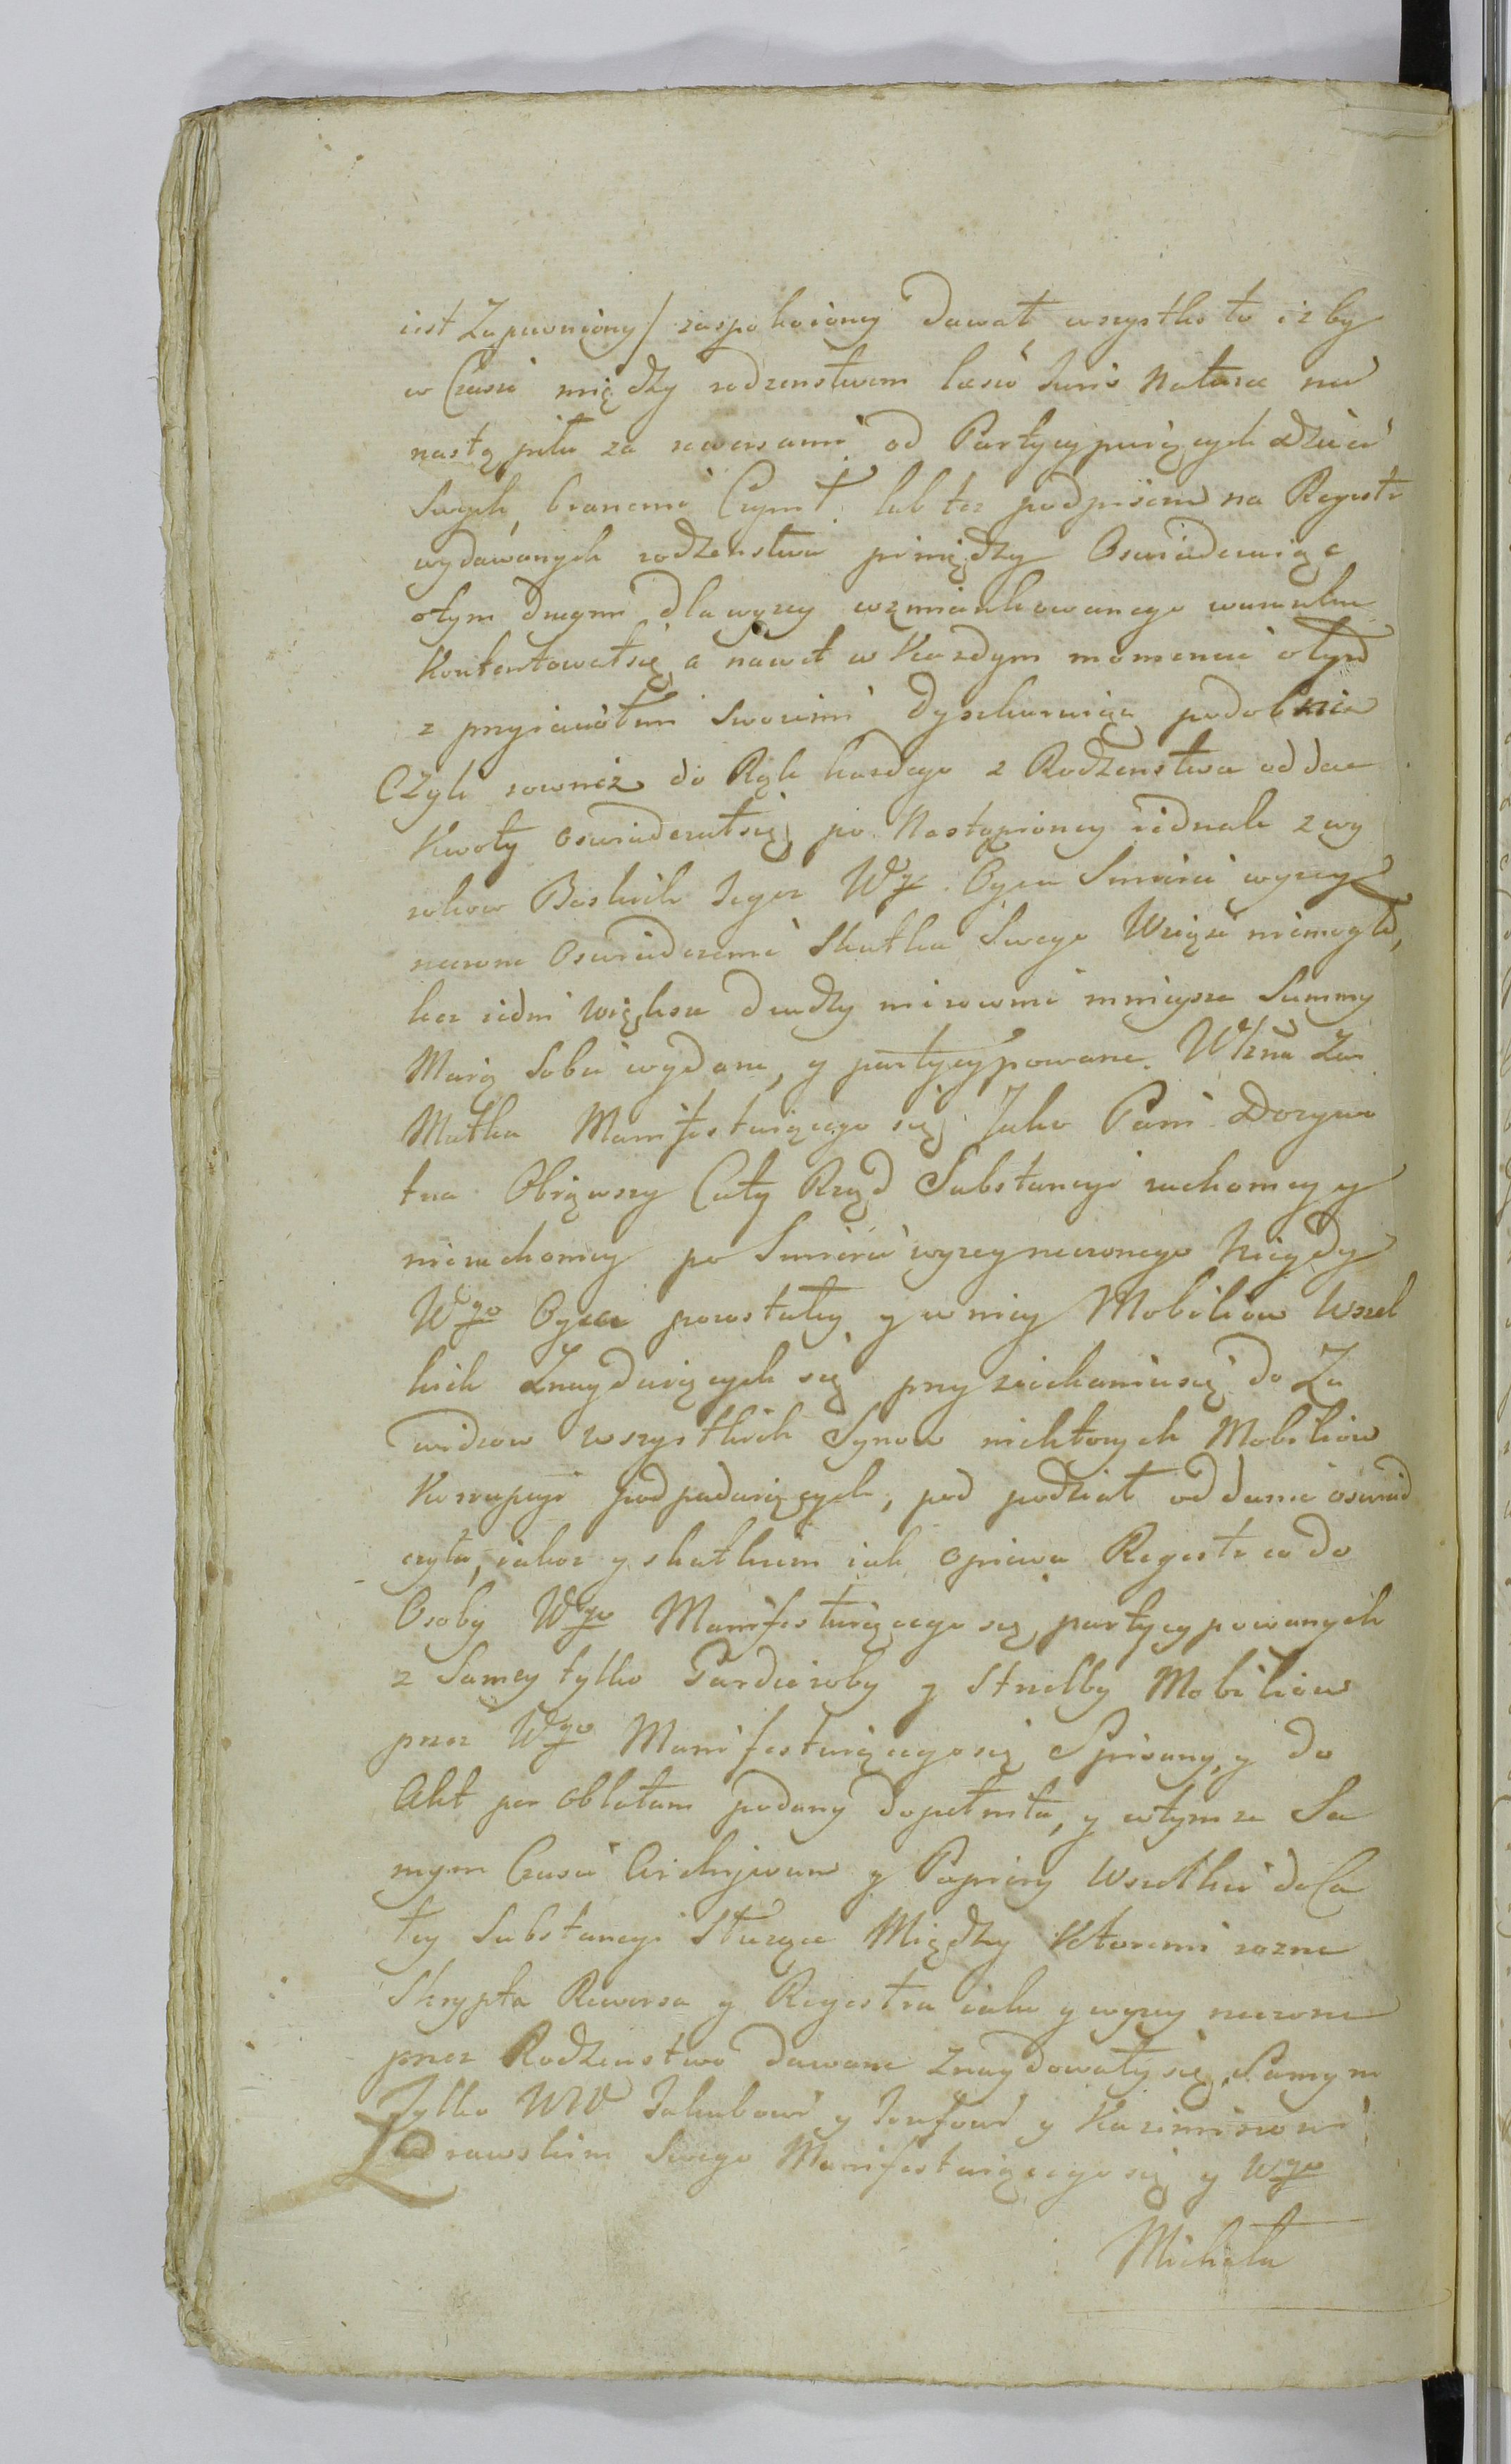 iest Zapewniony / zaspokoioney dawał, wszystko to iżby
w Czasie między rodzenstwem læsio Juris Naturæ nie
nastąpiła za rewersami od Partycypuiących dzieci
Swych, branemi Czynił. lub też podpisem na Regestr
wydawanych rodzenstwu pomiędzy Oswiadczaiąc
o tym drugim dla wyzey wzmiankowanego warunku
Kontentował się, a nawet w Kazdym momencie o tym
z przyiaciołmi Swoiemi dyszkuruiąc podobnie
Czyli rownież do Rąk kazdego z Rodzenstwa oddac
Kwoty oswiadczał się, po Nastąpioney iednak z wy
rokow Boskich Tegoz Wgo. Oyca Smierci wyzey
rzeczone Oswiadczenie Skutku Swego Wziąsc niemogło,
lecz iedni większe drudzy nierownie mnieysze Summy
Maią Sobie wydane, y partycypowane. Wżna Zas
Matka Manifestuiącego się, Jako Pani Dozywo
tna Obiąwszy Cały Rząd Substancyi ruchomey y
nieruchomey po Smierci wyzey rzeczonego Niegdy
Wgo Oyca pozostałey y w niey Mobiliow Wszel
kich Znayduiących się przy ziechaniu się do Za
wszystkich Synow niektorych Mobiliow
Korrupcyi podpadaiących, pod podział oddanie oswiad
czyła, iakoz y skutkiem iak opiewa Regestr co do
Osoby Wgo Manifestuiącego się partycypowanych
z Samey tylko Garderoby y Strzelby Mobiliow
przez Wgo Manifestuiącego się Spisany, y do
Akt per Oblatam podany dopełniła, y w tymze Sa
mym Czasie Archiwum y Papiery Wszelkie do Ca
łey Substancyi Słuzące Między Ktoremi rozne
Skrypta Rewersa y Regestra iako y wyzey rzeczone
przez Rodzenstwo dawane znaydowały się, Samym
Tylko WW Jakubowi y Jozefowi y Kazimierzowi
Swego Manifestuiącego się y Wgo
Michała